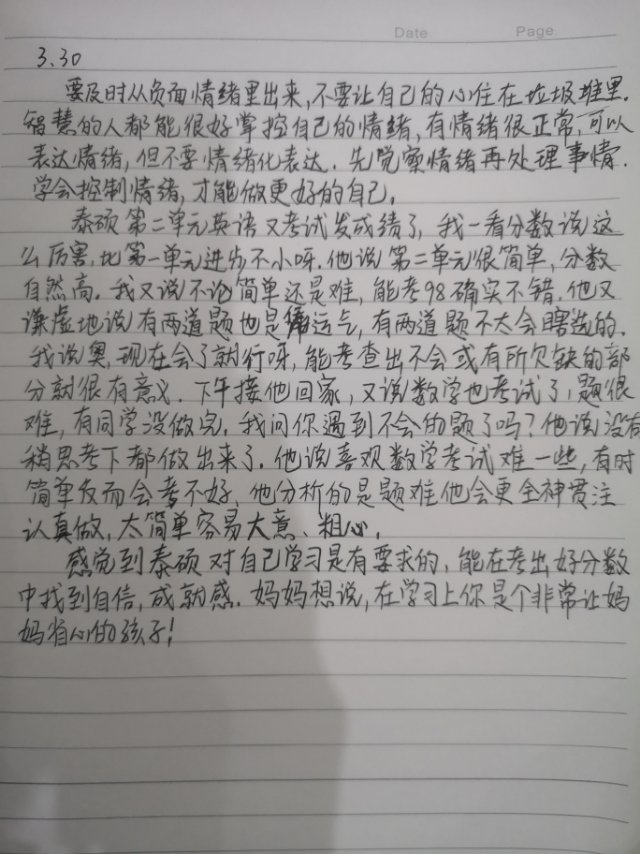 Date Page
3.30
要及时从负面情绪里出来,不要让自己的心住在垃圾堆里.
智慧的人都能很好掌控自己的情绪,有情绪很正常,可以
表达情绪,但不要情绪化表达.先觉察情绪再处理事情.
学会控制情绪,才能做更好的自己.
泰硕第二单元英语又考试发成绩了,我一看分数说这
么厉害,比第一单元进步不小呀.他说第二单元很简单,分数
自然高.我又说不论简单还是难,能考98确实不错.他又
谦虚地说有两道题也是运气,有两道题不太会瞎选的.
我说奥,现在会了就行呀,能考查出不会或有所欠缺的部
分就很有意义.下午接他回家,又说数学也考试了,题很
难,有同学没做完.我问你遇到不会的题了吗?他说没有
稍思考下都做出来了.他说喜观数学考试难一些,有时
简单反而会考不好,他分析的是题难他会更全神贯注
认真做,太简单容易大意、粗心.
感觉到泰硕对自己学习是有要求的,能在考出好分数
中找到自信,成就感.妈妈想说,在学习上你是个非常让妈
妈省心的孩子!